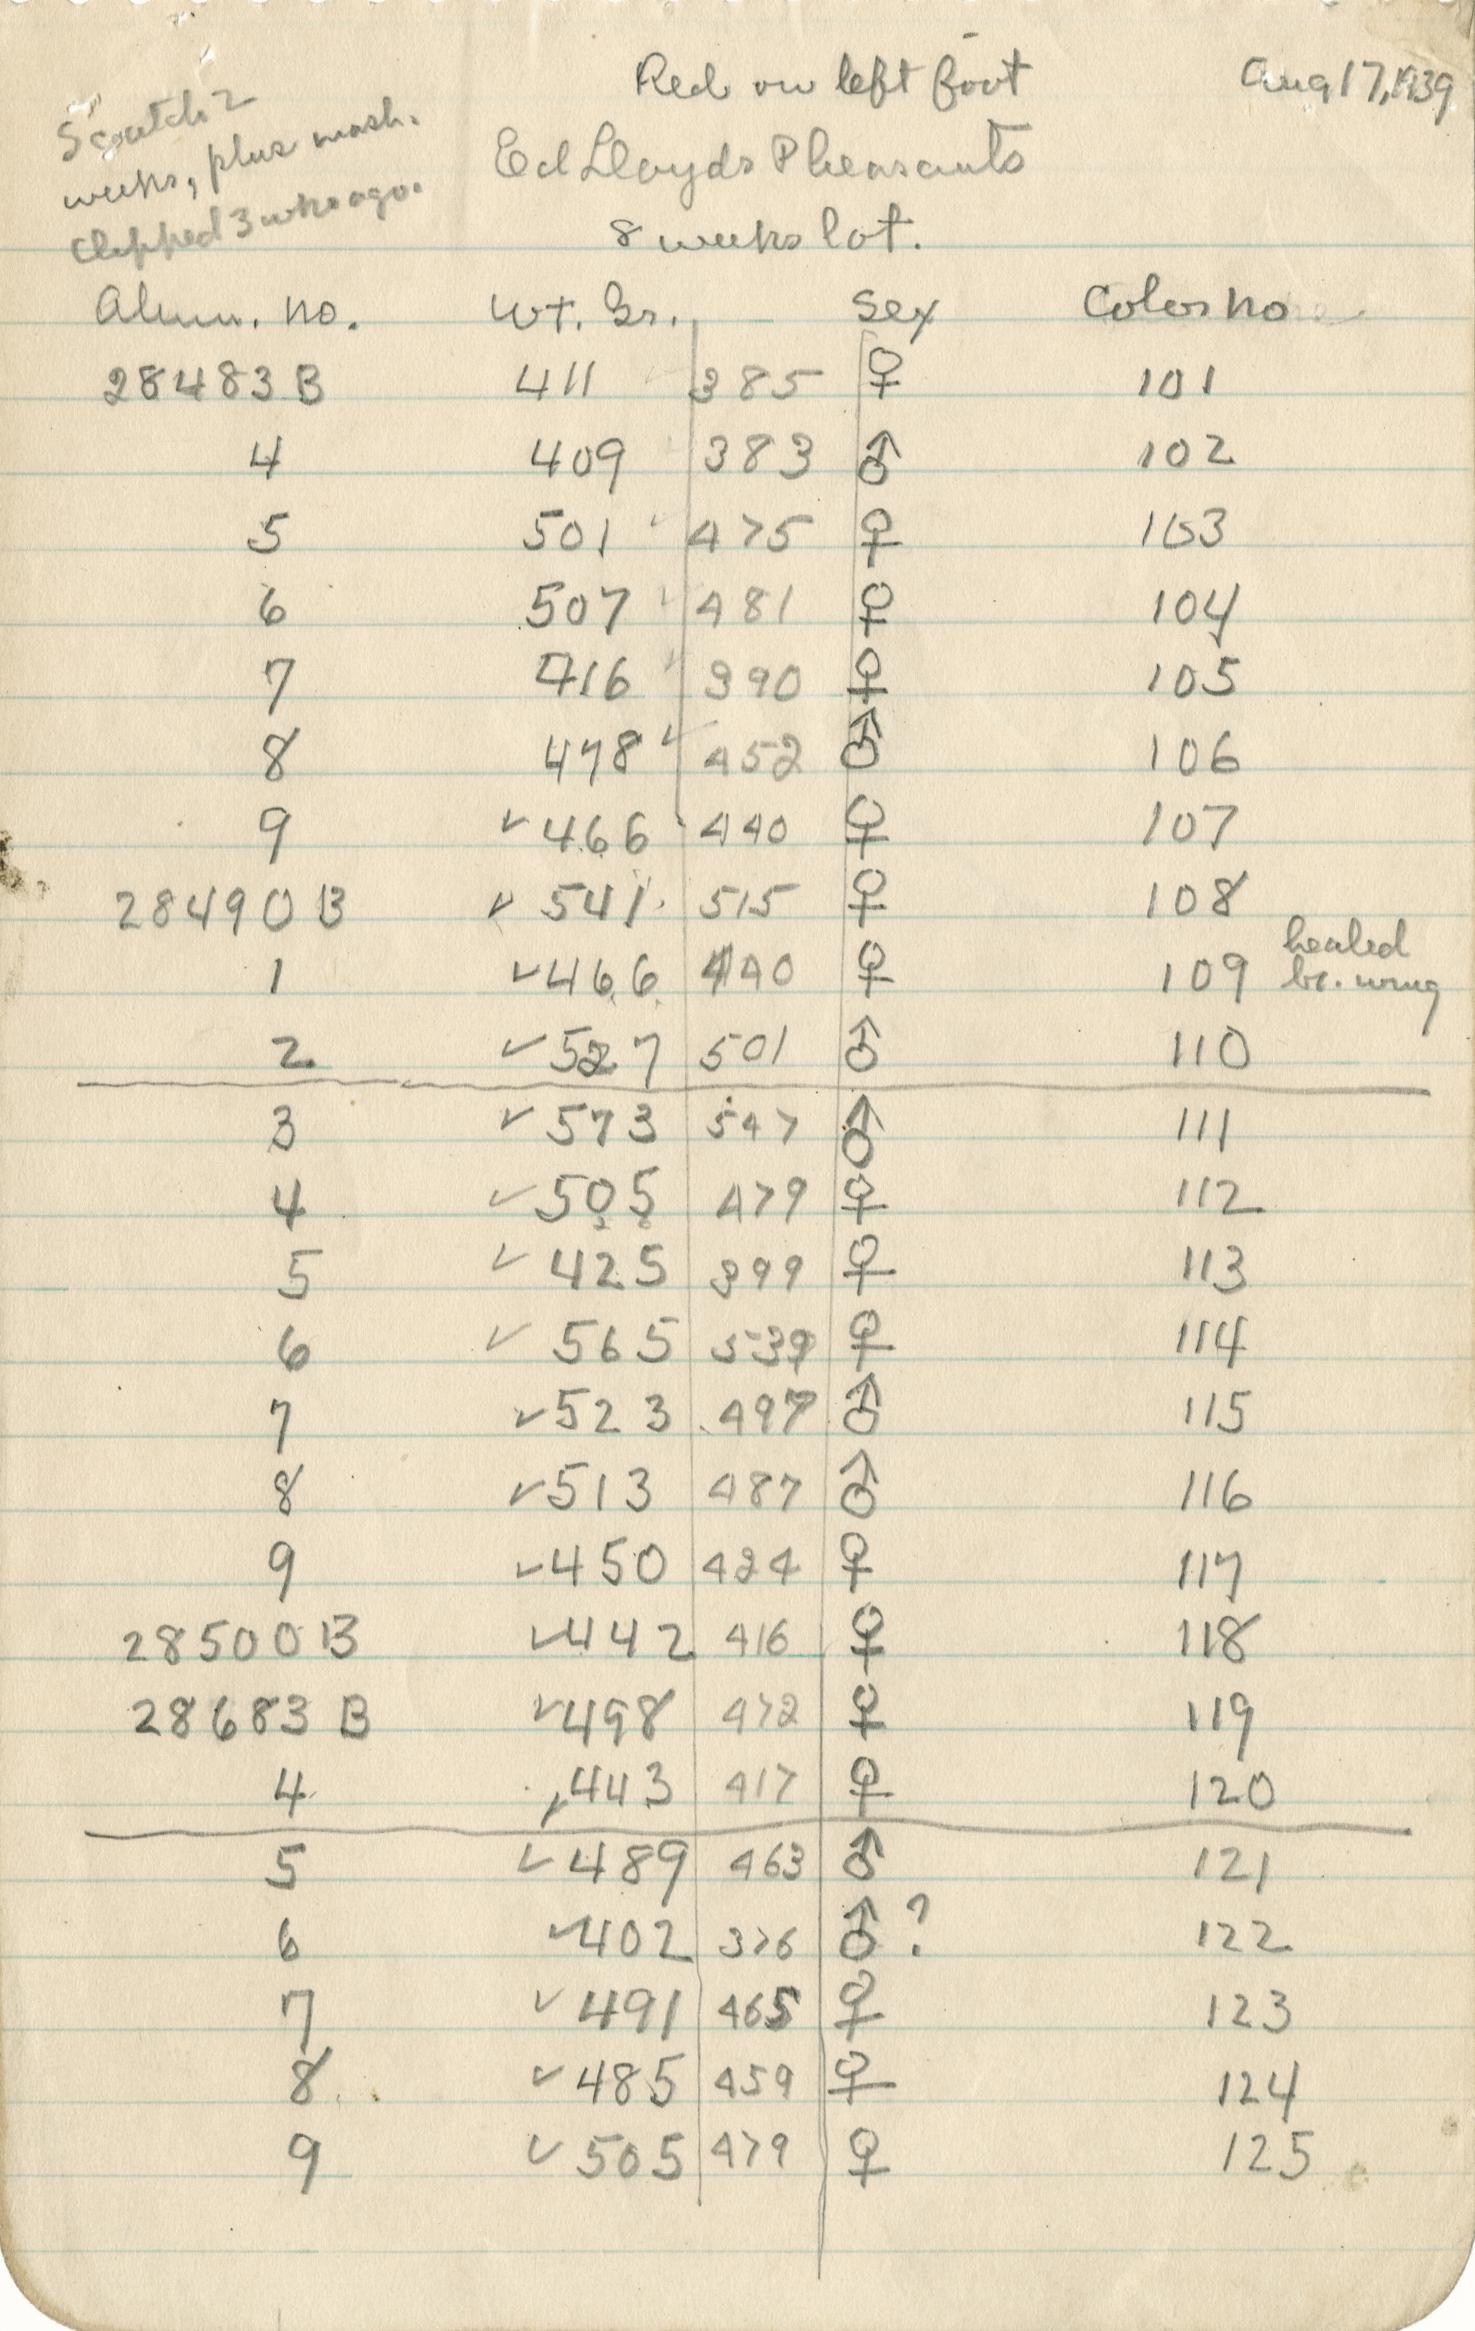 Red on left foot
Aug 17, 1939
Scratch 2
weeks, plus mash.
Clipped 3 wks ago.
Ed Lloyds Pheasants
8 weeks lot.
Alum. no. Wt. Gr. Sex Color no
28483 B 411 385 ♀ 101
4 409 383 ♂ 102
5 501 ✓ 475 ♀ 103
6 507 ✓ 481 ♀ 104
7 416 ✓ 390 ♀ 105
8 478 ✓ 452 ♂ 106
9 ✓ 466 440 ♀ 107
28490 B ✓ 541 515 ♀ 108
1 ✓ 466 440 ♀ 109 healed br. wing
2 ✓ 527 501 ♂ 110
3 ✓ 573 547 ♂ 111
4 ✓ 505 479 ♀ 112
5 ✓ 425 399 ♀ 113
6 ✓ 565 539 ♀ 114
7 ✓ 523 497 ♂ 115
8 ✓ 513 487 ♂ 116
9 ✓ 450 424 ♀ 117
28500 B ✓ 442 416 ♀ 118
28683 B ✓ 498 472 ♀ 119
4 ✓ 443 417 ♀ 120
5 ✓ 489 463 ♂ 121
6 ✓ 402 376 ♂ ? 122
7 ✓ 491 465 ♀ 123
8 ✓ 485 459 ♀ 124
9 ✓ 505 479 ♀ 125